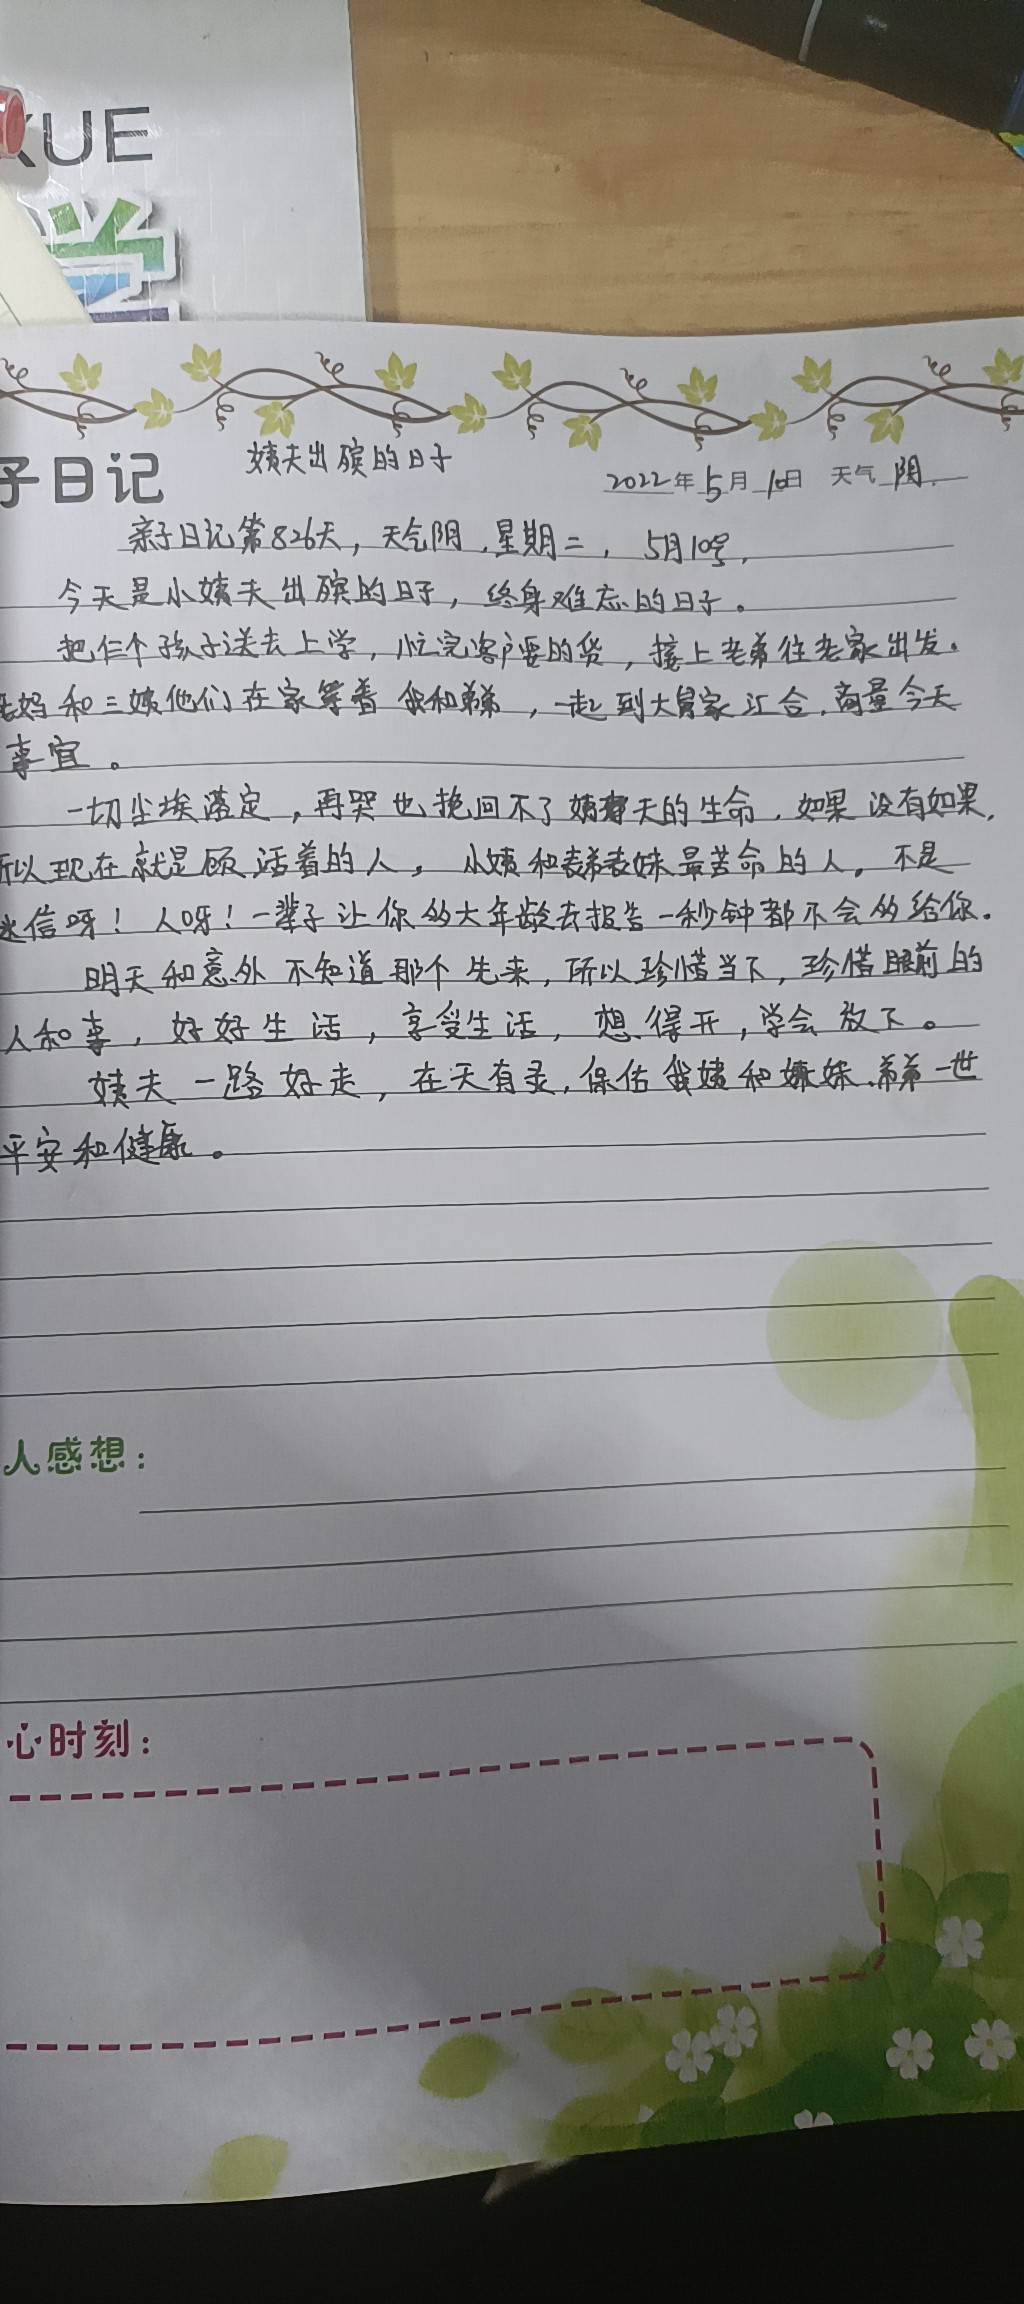 XUE
学
子日记
姨夫出殡的日子
2022年5月10日 天气 阴.
亲子日记第826天，天气阴，星期二，5月10号，
今天是小姨夫出殡的日子，终身难忘的日子。
把仨个孩子送去上学，忙完客户要的货，接上老弟往老家出发。
老妈和三姨他们在家等着我和弟弟，一起到大舅家汇合，商量今天
事宜。
一切尘埃落定，再哭也挽回不了姨夫的生命，如果没有如果，
所以现在就是顾活着的人，小姨和表弟表妹最苦命的人。不是
迷信呀！人呀！一辈子让你多大年龄去报告一秒钟都不会多给你。
明天和意外不知道那个先来，所以珍惜当下，珍惜眼前的
人和事，好好生活，享受生活，想得开，学会放下。
姨夫一路好走，在天有灵，保佑我姨和妹妹、弟弟一世
平安和健康。
人感想：
心时刻：